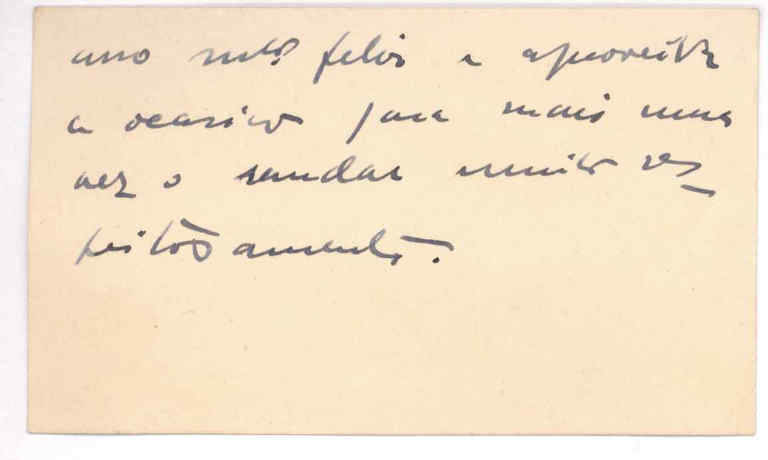 ano mto feliz e aproveita
a ocasião para mais uma
vez o saudar muito res-
peitosamente.